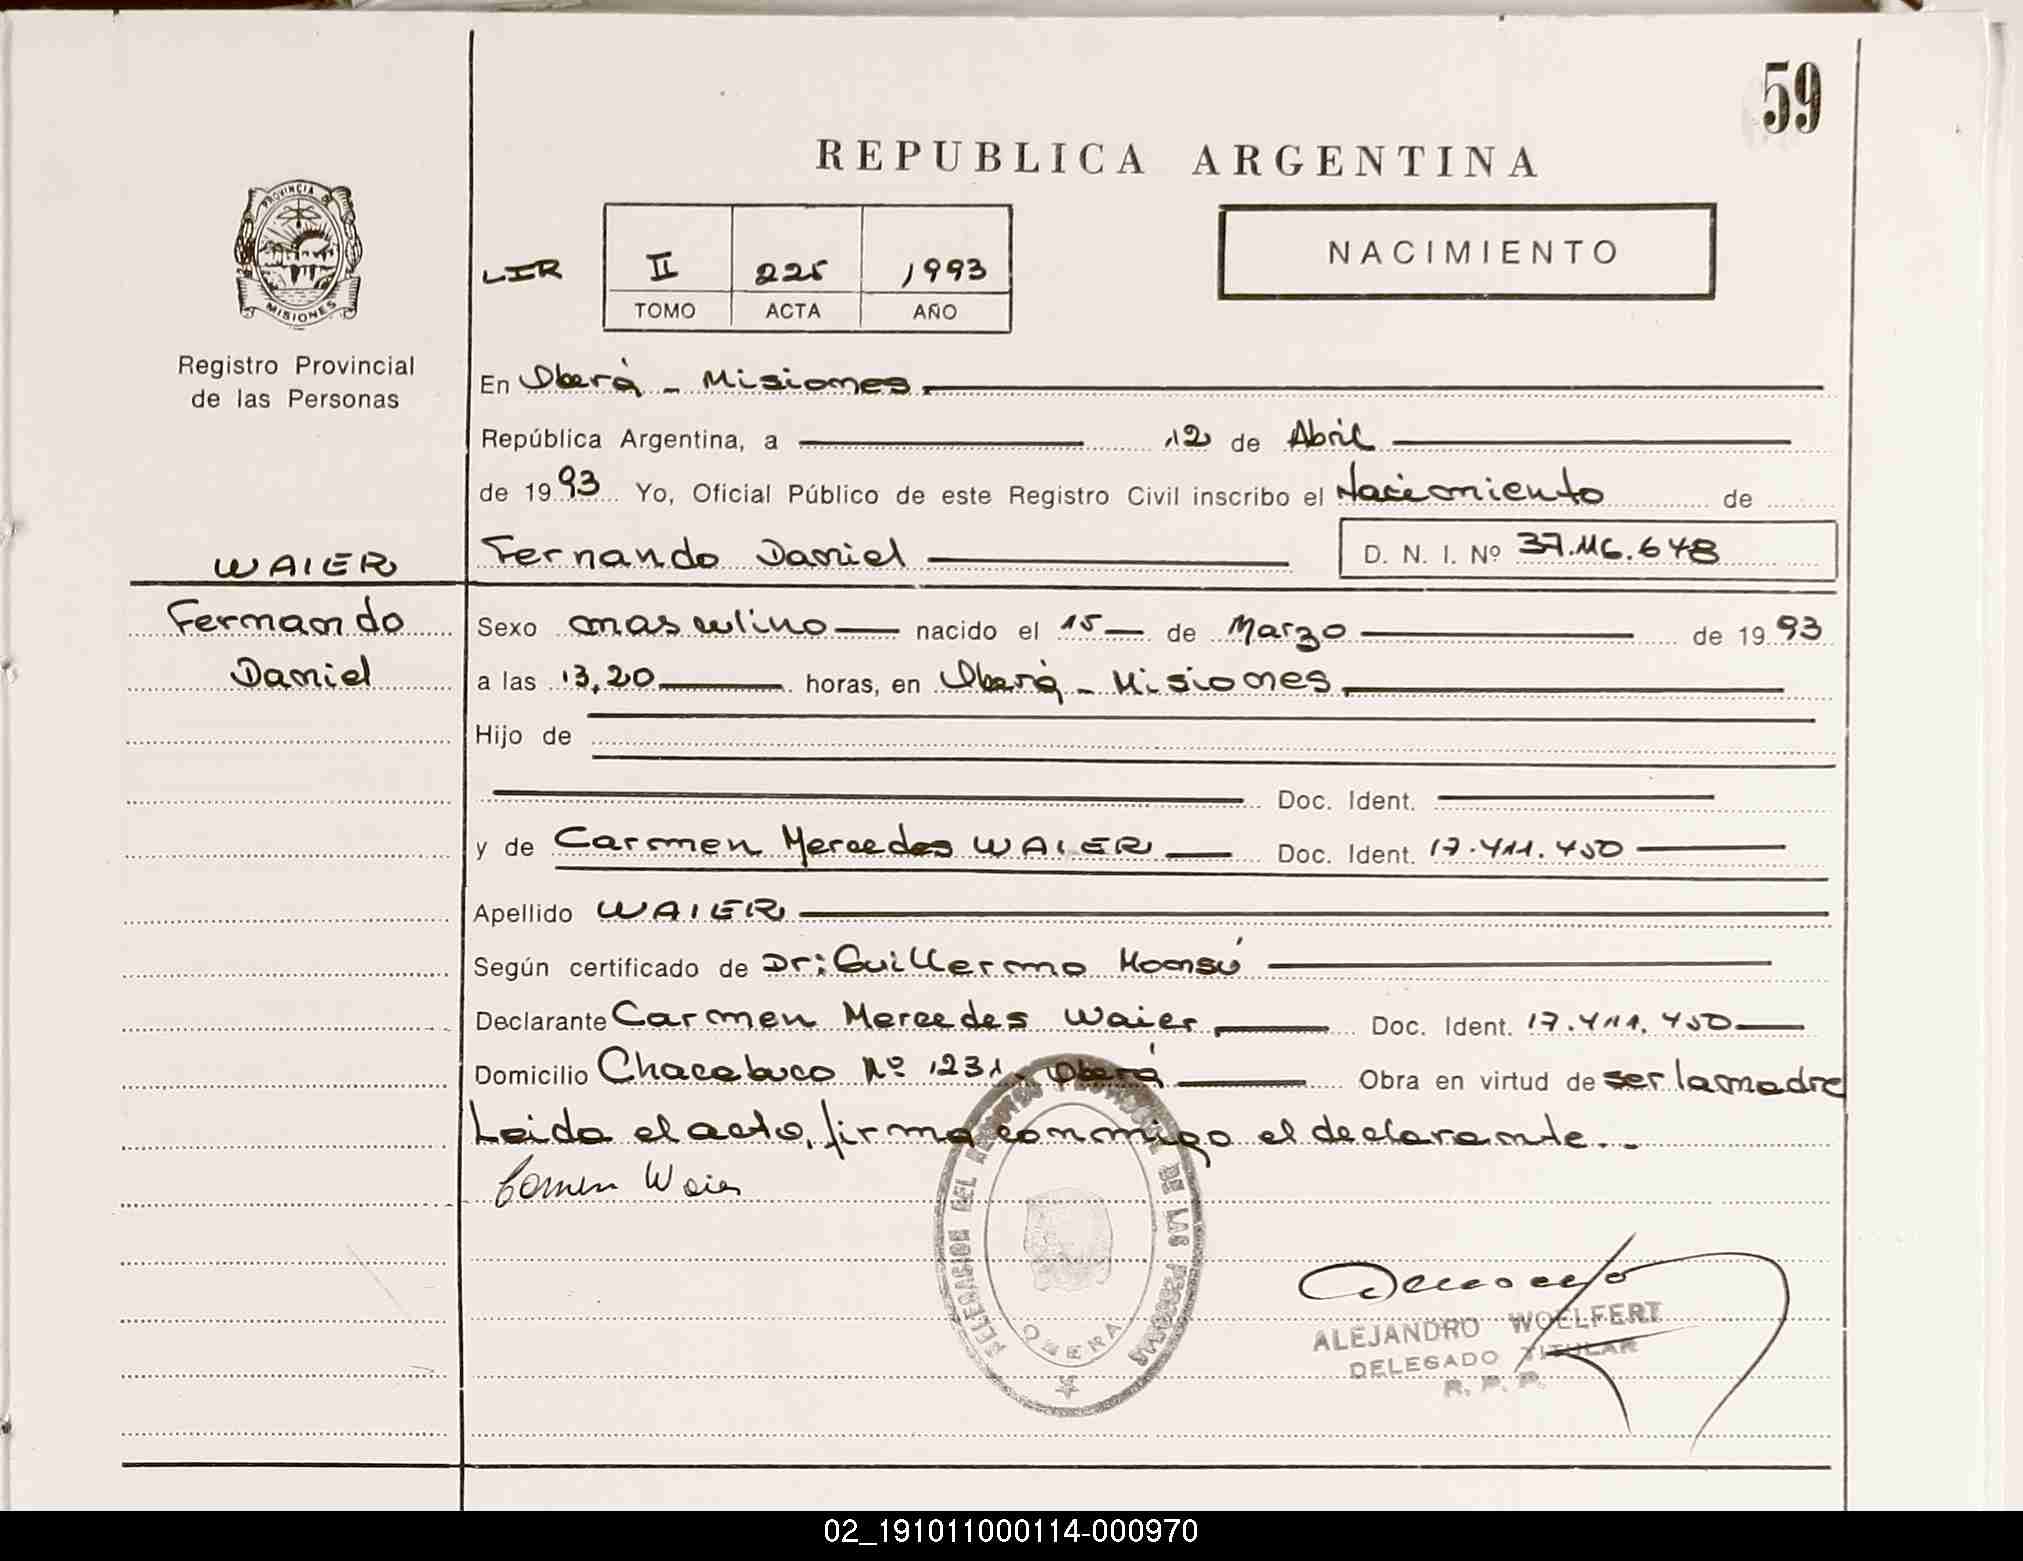 59
REPUBLICA ARGENTINA
PROVINCIA DE
MISIONES
Registro Provincial
de las Personas
NACIMIENTO
LIR II 225 1993
TOMO ACTA AÑO
En Oberá - Misiones
República Argentina, a 12 de Abril
de 1993 Yo, Oficial Público de este Registro Civil inscribo el Nacimiento de
WAIER
Fernando Daniel D. N. I. Nº 37.116.648
Fernando
Daniel
Sexo masculino nacido el 15 de Marzo de 1993
a las 13,20 horas, en Oberá - Misiones
Hijo de
Doc. Ident.
y de Carmen Mercedes WAIER Doc. Ident. 17.411.450
Apellido WAIER
Según certificado de Dr: Guillermo Monsú
Declarante Carmen Mercedes Waier Doc. Ident. 17.411.450
Domicilio Chacabuco Nº 1231 - Oberá Obra en virtud de ser la madre
Leida el acta, firma conmigo el declarante.-
Carmen Waier
DELEGACION DEL REGISTRO PROVINCIAL DE LAS PERSONAS
OBERA
ALEJANDRO WOELFERT
DELEGADO TITULAR
R. P. P.
02_191011000114-000970